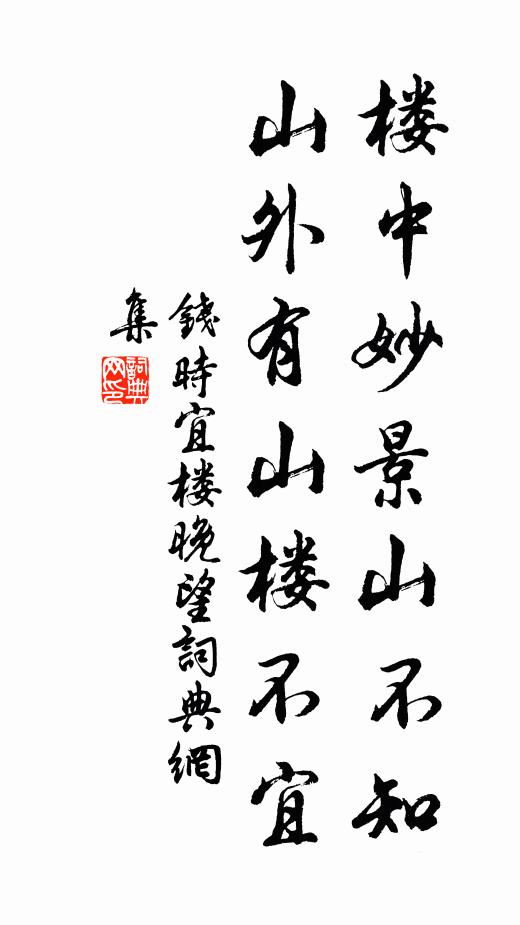 楼中妙景山不知
山外有山楼不宜
錢時宜楼晚望詞典網
集
詞典
网印